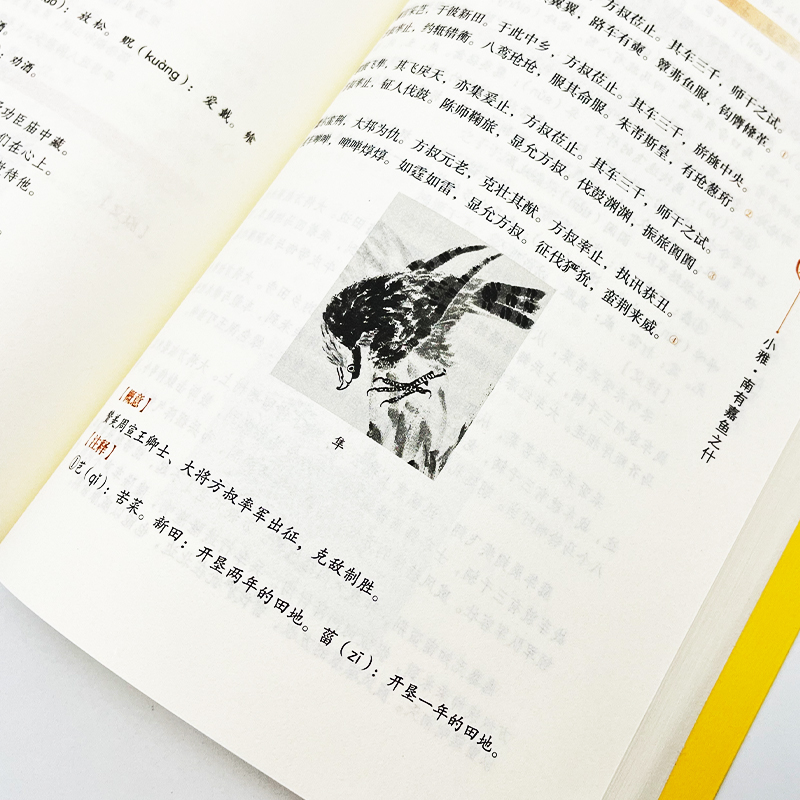 ǎo）：放松。贶（kuàng）：爱戴。绘
酒。
劝酒。
功臣庙中藏
们在心上。
待他。
方叔莅止。其车三千，师干之试。
翼翼，路车有奭。簟茀鱼服，钩膺鞗革。①
芑，于彼新田。于此中乡，方叔莅止。其车三千，旂旐中央。
率止，约軧错衡。八鸾玱玱，服其命服。朱芾斯皇，有玱葱珩。②
飞隼，其飞戾天，亦集爰止。方叔莅止。其车三千，师干之试。
率止，钲人伐鼓。陈师鞠旅，显允方叔。伐鼓渊渊，振旅阗阗。③
蛮荆，大邦为仇。方叔元老，克壮其猷。方叔率止，执讯获丑。
啴啴，啴啴焞焞。如霆如雷，显允方叔。征伐𤞤狁，蛮荆来威。④
隼
【概意】
赞美周宣王卿士、大将方叔率军出征，克敌制胜。
【注释】
①芑（qǐ）：苦菜。新田：开垦两年的田地。菑（zī）：开垦一年的田地。
小雅·南有嘉鱼之什